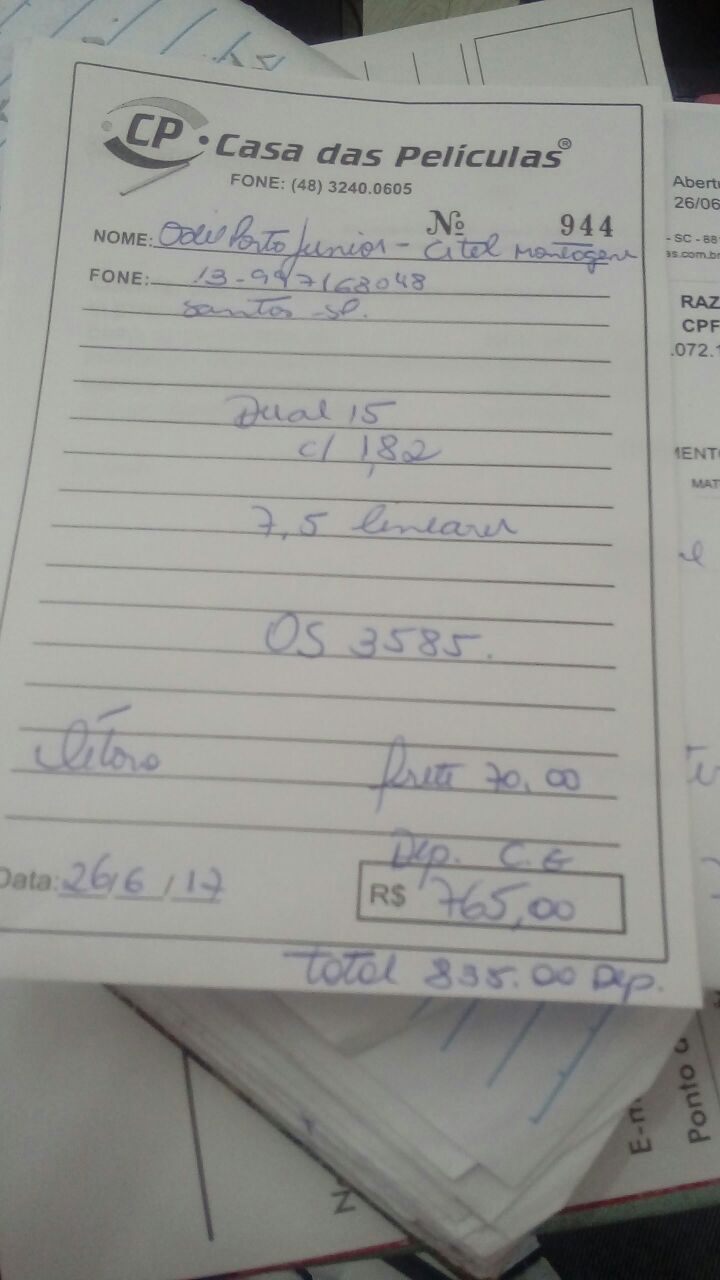 CP Casa das Películas®
FONE: (48) 3240.0605
Nº 944
NOME: Odil Porto Junior - Citel Montagem
FONE: 13-997168048
Santos - SP.
Dual 15
c/ 1,82
7,5 lineares
OS 3585.
frete 70,00
Dep. C.E
Data: 26/6/17
R$ 765,00
total 835.00 Dep.
Abertu
26/06
- SC - 88
as.com.br
RAZ
CPF
.072.1
MENTO
MAT
E-m
Ponto d
N